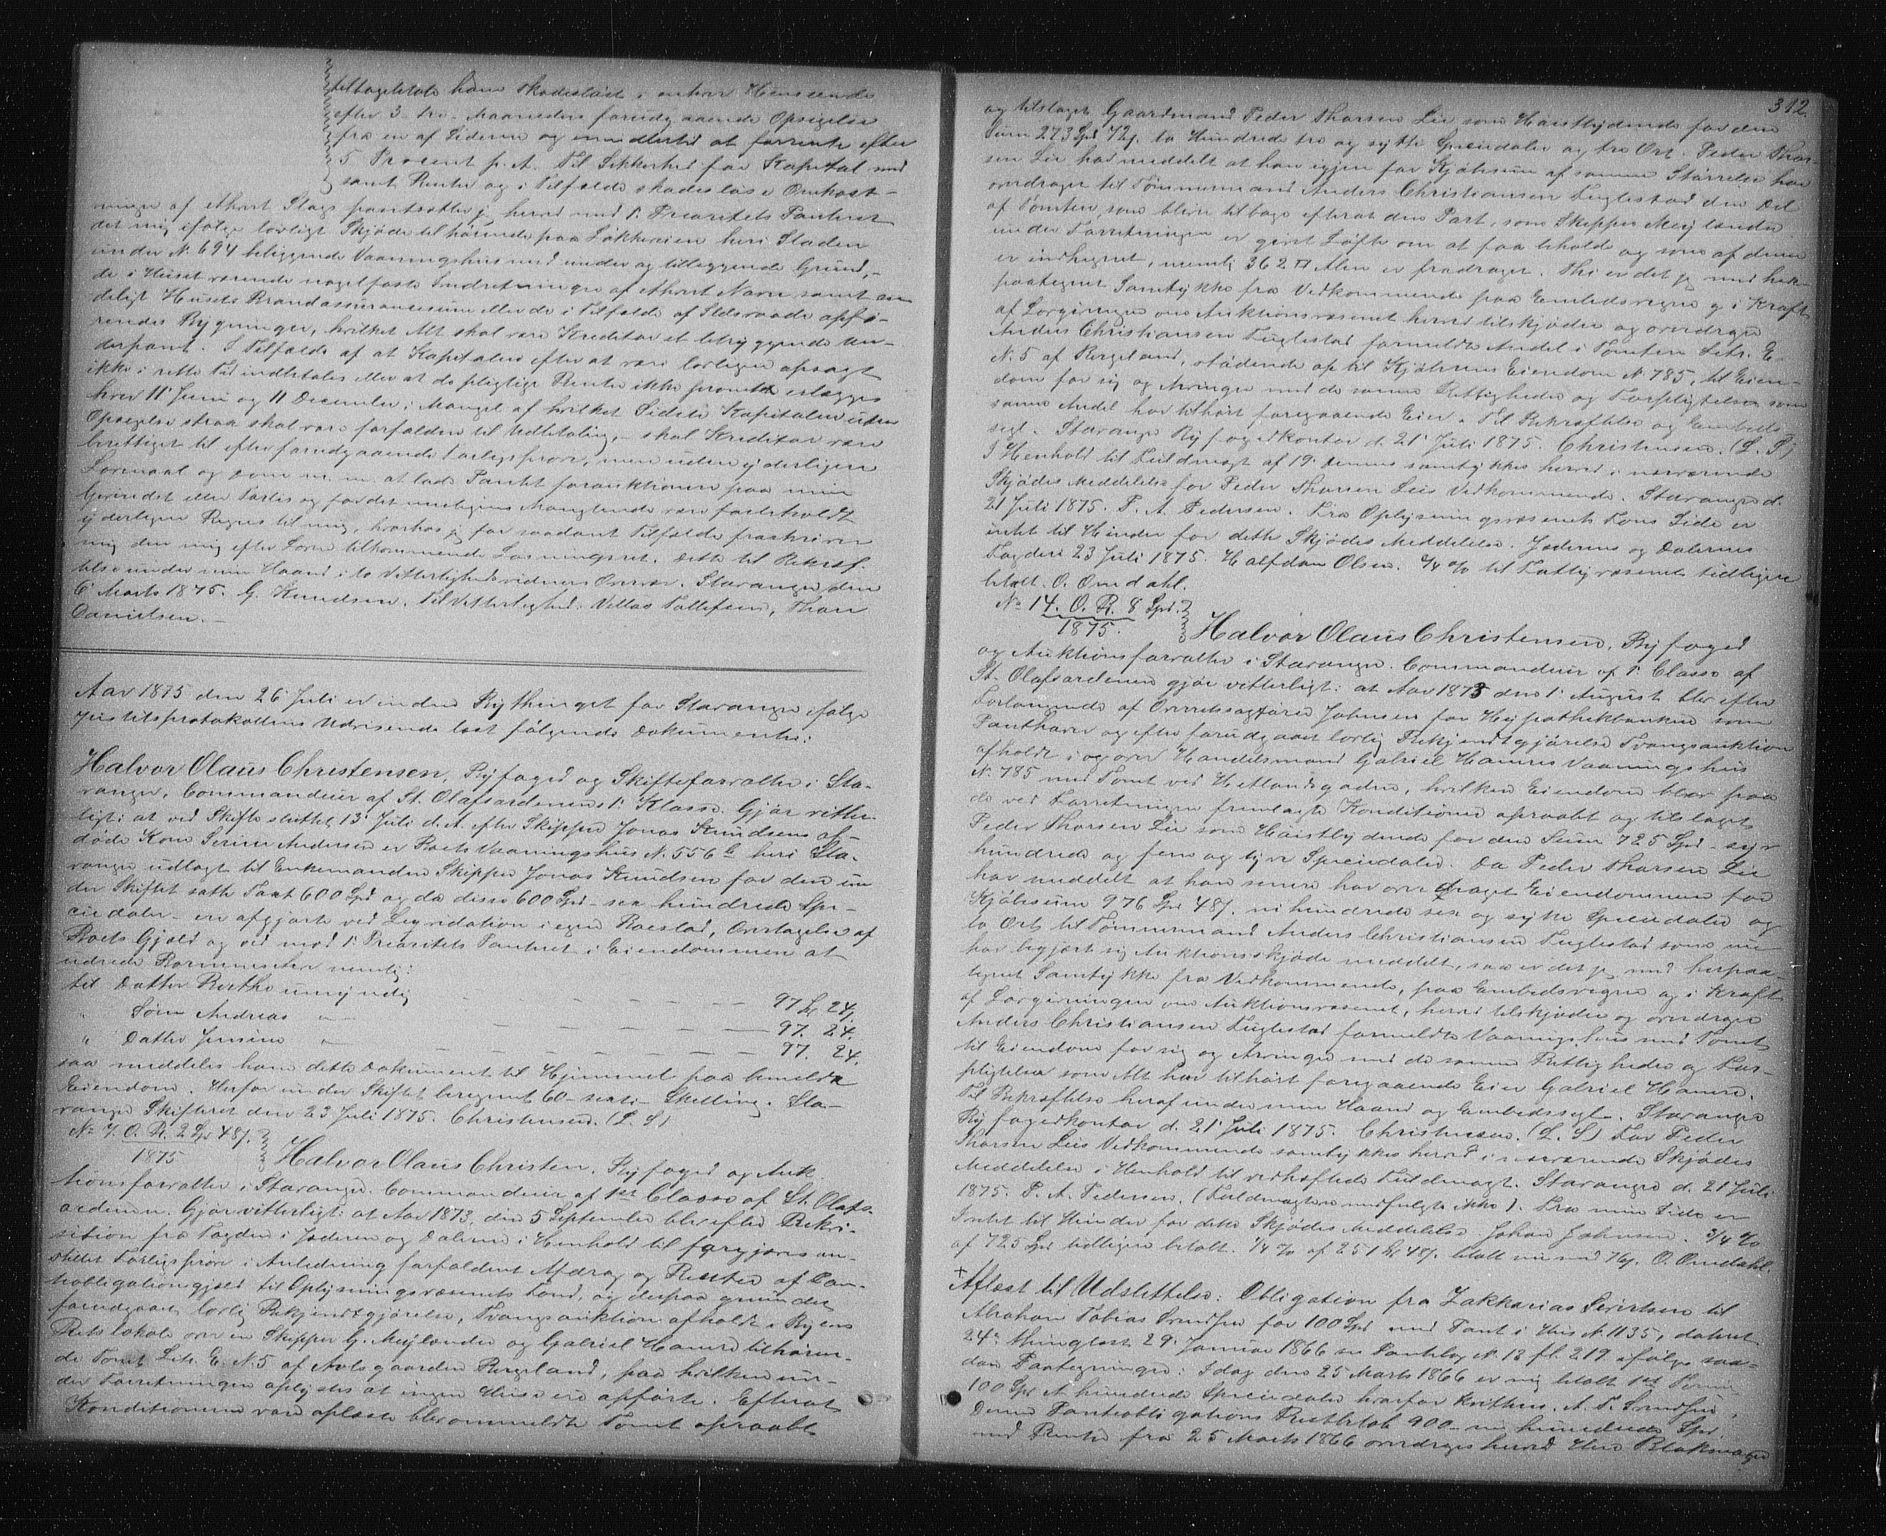 tilbagebetale ham skadesløst i enhver Henseende
efter 3 tre Maaneders forudgaaende Opsigelse
fra en af Siderne og imidlertid at forrente efter
5 Procent p. A. Til Sikkerhed for Kapital med
samt Renter og i Tilfælde skadesløse Omkost-
ninger af ethvert Slags pantsætter jeg herved med 1' Prioritets Panteret
det mig ifølge lovligt Skjøde tilhørende paa Løkkeveien heri Staden
under N. 694 beliggende Vaaningshus med under og tilleggende Grund,
de i Huset værende nagelfaste Indretninger af ethvert Navn samt en
deligt Husets Brandassurancesum eller de i Tilfælde af Ildsvaade opfø-
rendes Bygninger, hvilket Alt skal være Kreditor et betryggende Un-
derpant. I Tilfælde af at Kapitalen efter at være lovligen opsagt
ikke i rette Tid indbetales eller at de pligtige Renter ikke promte erlægges
hver 11' Juni og 11 December, i Mangel af hvilket Sidste Kapitalen uden
Opsigelse straa skal være forfalden til Udbetaling, - skal Kreditor være
berettiget til efter forudgaaende Forligsprøve, men uden yderligere
Lovmaal og Dom m. m. at lade Pantet forauktionere paa mine
Gevindst eller Forlis og for det muligens Manglende være forbeholdt
yderligere Regres til mig, hvorhos jeg for saadant Tilfælde fraskriver
mig den mig efter Loven tilkommende Løsningsret. Dette til Bekræf-
telse under min Haand i to Vitterlighedsvidners Overvær. Stavanger den
6' Marts 1875. G. Knudsen. Til Vitterlighed: Villas Tollefsen, Thore
Danielsen.
Aar 1875 den 26' Juli er inden Bythinget for Stavanger ifølge
Justitsprotokollens Udvisende læst følgende Dokumenter:
Halvor Olaus Christensen, Byfoged og Skifteforvalter i Sta-
vanger, Commandeur af St. Olafsordenens 1' Klasse Gjør vitter-
ligt: at ved Skifte sluttet 13' Juli d. A. efter Skipper Jonas Knudsens af-
døde Kone Serine Andersen er Boets Vaaningshus N. 556 b heri Sta-
vanger udlagt til Enkemanden Skipper Jonas Knudsen for den un
der Skiftet satte Taxt 600 Spd og da disse 600 Spd - sex hundrede Spe-
ciedaler - er afgjorte ved Liqvidation i egen Boeslod, Overtagelse af
Boets Gjæld og ved mod 1' Prioritets Panteret i Eiendommen at
udrede Børnenes Arv nemlig:
til Datter Berthe umyndig — — — — 97 Sp 24 s.
" Søn Andreas " — — — — 97. 24.
" Datter Jensine " — — — — 97. 24.
saa meddeles ham dette Dokument til Hjemmel paa bemeldte
Eiendom. Herfor under Skiftet beregnet 60 - sexti - Skilling. Sta-
vanger Skifteret den 23 Juli 1875. Christensen. (L. S)
No 7. O. R. 2 Sp 48 s.
1875
Halvor Olaus Christen, Byfoged og Auk
tionsforvalter i Stavanger. Commandeur af 1ste Classe af St. Olafs-
ordenen. Gjør vitterligt: at Aar 1873, den 5 September blev efter Rekvi-
sition fra Fogden i Jæderen og Dalerne i Henhold til forgjæves an-
stillet Forligsprøve i Anledning forfaldent Afdrag og Renter af Pan-
teobligationsgjæld til Oplysningsvæsenets Fond, og derpaa grundet
forudgaaet lovlig Bekjendtgjørelse, Tvangsauktion afholdt i Byens
Retslokale over en Skipper G. Meylænder og Gabriel Hamre tilhøren-
de Tomt Litr. E. N. 5 af Avlsgaarden Bergeland, paa hvilken un-
der Forretningen oplystes at ingen Huse ere opførte. Efterat
Konditionerne vare oplæste blev ommeldte Tomt opraabt
312
og tilslaget Gaardmand Peder Thorsen Lie som Høistbydende for den
Sum 273 Spd 72 s. to Hundrede tre og sytti Speciedaler og tre Ort. Peder Thor-
sen Lie har meddelt at han igjen for Kjøbesum af samme Størrelse har
overdraget til Tømmermand Anders Christiansen Fuglestad den Del
af Tomten, som blev tilbage efterat den Part, som Skipper Meylænder
under Forretningen er givet Løfte om at faa beholde og som af denne
er indhegnet, nemlig 362 □ Alen er fradraget. Thi er det jeg med her-
paategnet Samtykke fra Vedkommende paa Embedsvegne og i Kraft
af Lovgivningen om Auktionsvæsenet herved tilskjøder og overdrager
Anders Christiansen Fuglestad formeldte Andel i Tomten Litr. E-
N. 5 af Bergeland, stødende op til Kjøberens Eiendom N. 785, til Eien-
dom for sig og Arvinger med de samme Rettigheder og Forpligtelser som
samme Andel har tilhørt foregaaende Eier. Til Bekræftelse og Embeds-
segl. Stavanger Byfogedkontor d. 21' Juli 1875. Christensen. (L. S)
I Henhold til Fuldmagt af 19' Dennes samtykkes herved i nærværende
Skjødes Meddelelse for Peder Thorsen Lies Vedkommende. Stavanger d.
21 Juli 1875. P. A. Pedersen. Fra Oplysningsvæsenets Fons Side er
intet til Hinder for dette Skjødes Meddelelse. Jæderens og Dalernes
Fogderi 23 Juli 1875. Halfdan Olsen. ¼ % til Fattigvæsenet tidligere
betalt. O. Omdahl.
No 14. O. R. 8 Spd.
1875.
Halvor Olaus Christensen, Byfoged
og Auktionsforvalter i Stavanger. Commandeur af 1' Classe af
St. Olafsordenen gjør vitterligt: at Aar 1873 den 1' August blev efter
Forlangende af Overretssagfører Johnsen for Hypothekbanken som
Panthaver og efter forudgaaet lovlig Bekjendtgjørelse Tvangsauktion
afholdt i og over Handelsmand Gabriel Hamres Vaaningshus
N. 785 med Tomt ved Hetlandsgaden, hvilken Eiendom blev paa
de ved Forretningen fremlagte Konditioner opraabt og tilslaget
Peder Thorsen Lie som Høistbydende for den Sum 725 Spd - syv
hundrede og fem og tyve Speciedaler. Da Peder Thorsen Lie
har meddelt at han senere har overdraget Eiendommen for
Kjøbesum 976 Spd 48 s. ni hundrede sex og sytti Speciedaler og
to Ort til Tømmermand Anders Christiansen Fuglestad som nu
har begjært sig Auktionsskjøde meddelt, saa er det jeg med herpaa-
tegnet Samtykke fra Vedkommende, paa Embedsvegne og i Kraft
af Lovgivningen om Auktionsvæsenet, herved tilskjøder og overdrager
Anders Christiansen Fuglestad formeldte Vaaningshus med Tomt
til Eiendom for sig og Arvinger med de samme Rettigheder og For-
pligtelser som Alt har tilhørt foregaaende Eier Gabriel Hamre.
Til Bekræftelse heraf under min Haand og Embedssegl. Stavanger
Byfogedkontor d. 21' Juli 1875. Christensen. (L. S) For Peder
Thorsen Lies Vedkommende samtykkes herved i nærværende Skjødes
Meddelelse i Henhold til vedhæftede Fuldmagt. Stavanger d. 21' Juli
1875. P. A. Pedersen. (Fuldmagten medfulgte ikke). Fra min Side er
Intet til Hinder for dette Skjødes Meddelelse Johan Johnsen. ¾ %
af 725 Spd tidligere betalt. ¼ % af 251 Sp 48 s. betalt nu med 76 s. O. Omdahl.
+ Aflæst til Udslettelse: Obligation fra Zakkarias Sivertsen til
Abraham Tobias Svendsen for 100 Spd med Pant i Hus N. 1135, dateret
24' thinglæst 29' Januar 1866 se Pantebog N. 12 fl. 219. ifølge saa-
dan Paategninger: Idag den 25 Marts 1866 er mig betalt 1ste Termin
100 Spd et hundrede Speciedaler hvorfor kvitteres. A. T. Svendsen.
Denne Panteobligations Restbeløb 900 - ni hundrede Spd
med Renter fra 25 Marts 1866 overdrages herved Herr Blokmager